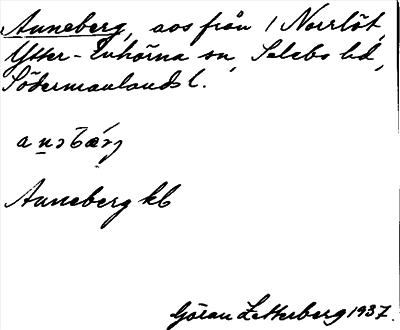 Anneberg, aos från 1 Norrlöt,
Ytter-Enhörna sn, Selebo hd,
Södermanlands l.
Anneberg kb
Göran Zetterberg 1937.